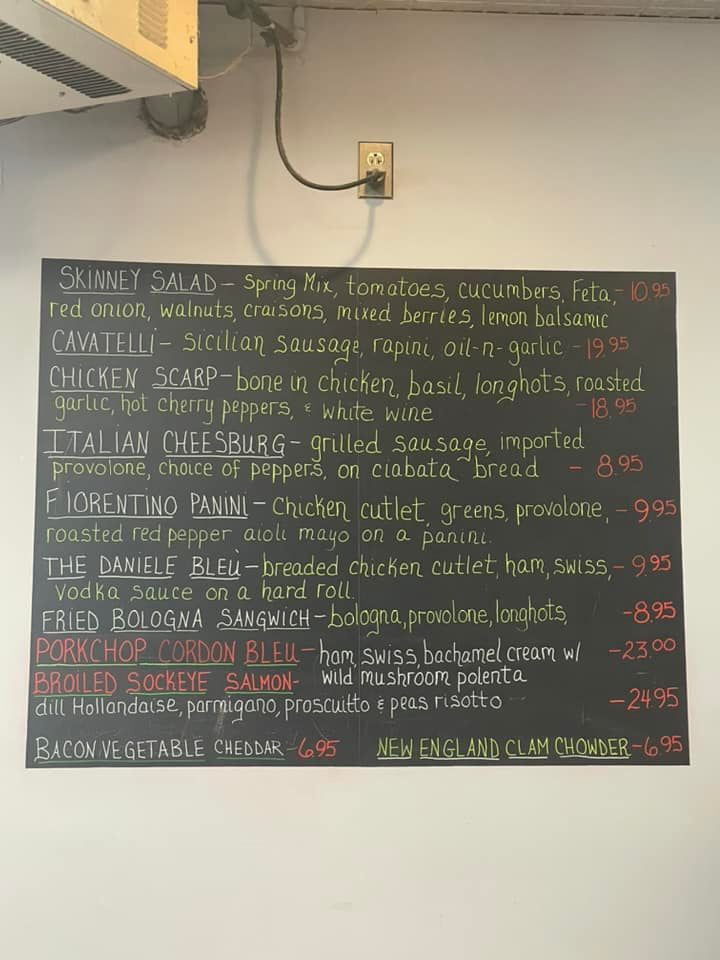 SKINNEY SALAD - Spring Mix, tomatoes, cucumbers, Feta, - 10.95
red onion, walnuts, craisons, mixed berries, lemon balsamic
CAVATELLI - Sicilian sausage, rapini, oil-n-garlic - 19.95
CHICKEN SCARP - bone in chicken, basil, longhots, roasted
garlic, hot cherry peppers, & white wine - 18.95
ITALIAN CHEESBURG - grilled sausage, imported
provolone, choice of peppers, on ciabata bread - 8.95
FIORENTINO PANINI - Chicken cutlet, greens, provolone, - 9.95
roasted red pepper aioli mayo on a panini.
THE DANIELE BLEU - breaded chicken cutlet, ham, swiss, - 9.95
Vodka sauce on a hard roll.
FRIED BOLOGNA SANGWICH - bologna, provolone, longhots, - 8.95
PORKCHOP CORDON BLEU - ham, swiss, bachamel cream w/ - 23.00
wild mushroom polenta
BROILED SOCKEYE SALMON -
dill Hollandaise, parmigano, proscuitto & peas risotto - 24.95
BACON VEGETABLE CHEDDAR - 6.95 NEW ENGLAND CLAM CHOWDER - 6.95